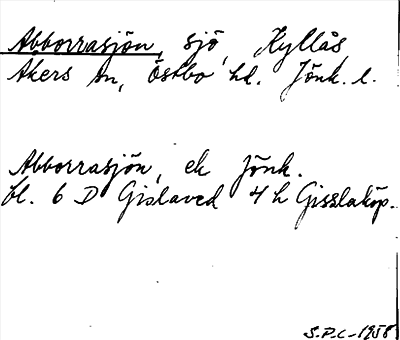 Abborrasjön, sjö, Hyllås,
Åkers sn, Östbo hd. Jönk. l.
Abborrasjön, ek Jönk.
bl. 6 D Gislaved 4 h Gisslaköp.
S.P.C-1958